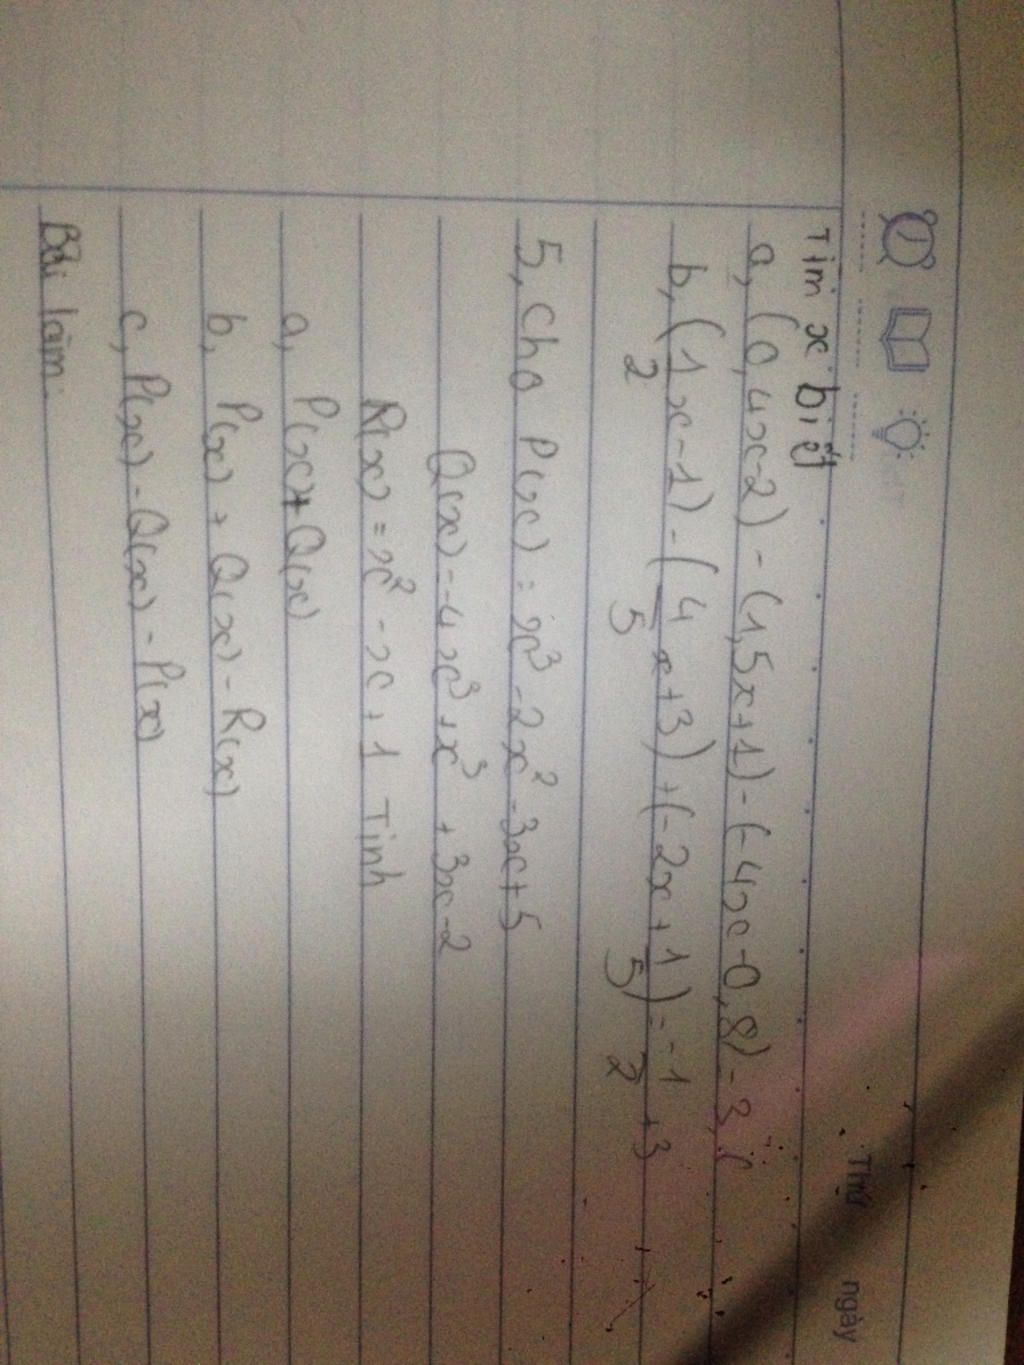 Thứ ngày
Tìm x biết
a, (0,4x-2) - (1,5x+1) - (-4x-0,8) - 3,
b, (1/2 x-1) - (4/5 x+3) + (-2x + 1/5) = -1/2 + 3
5, Cho P(x) = x³ - 2x² - 3x + 5
Q(x) - -4x³ + x³ + 3x - 2
R(x) = x² - x + 1 Tính
a, P(x) + Q(x)
b, P(x) + Q(x) - R(x)
c, P(x) - Q(x) - P(x)
Bài làm: